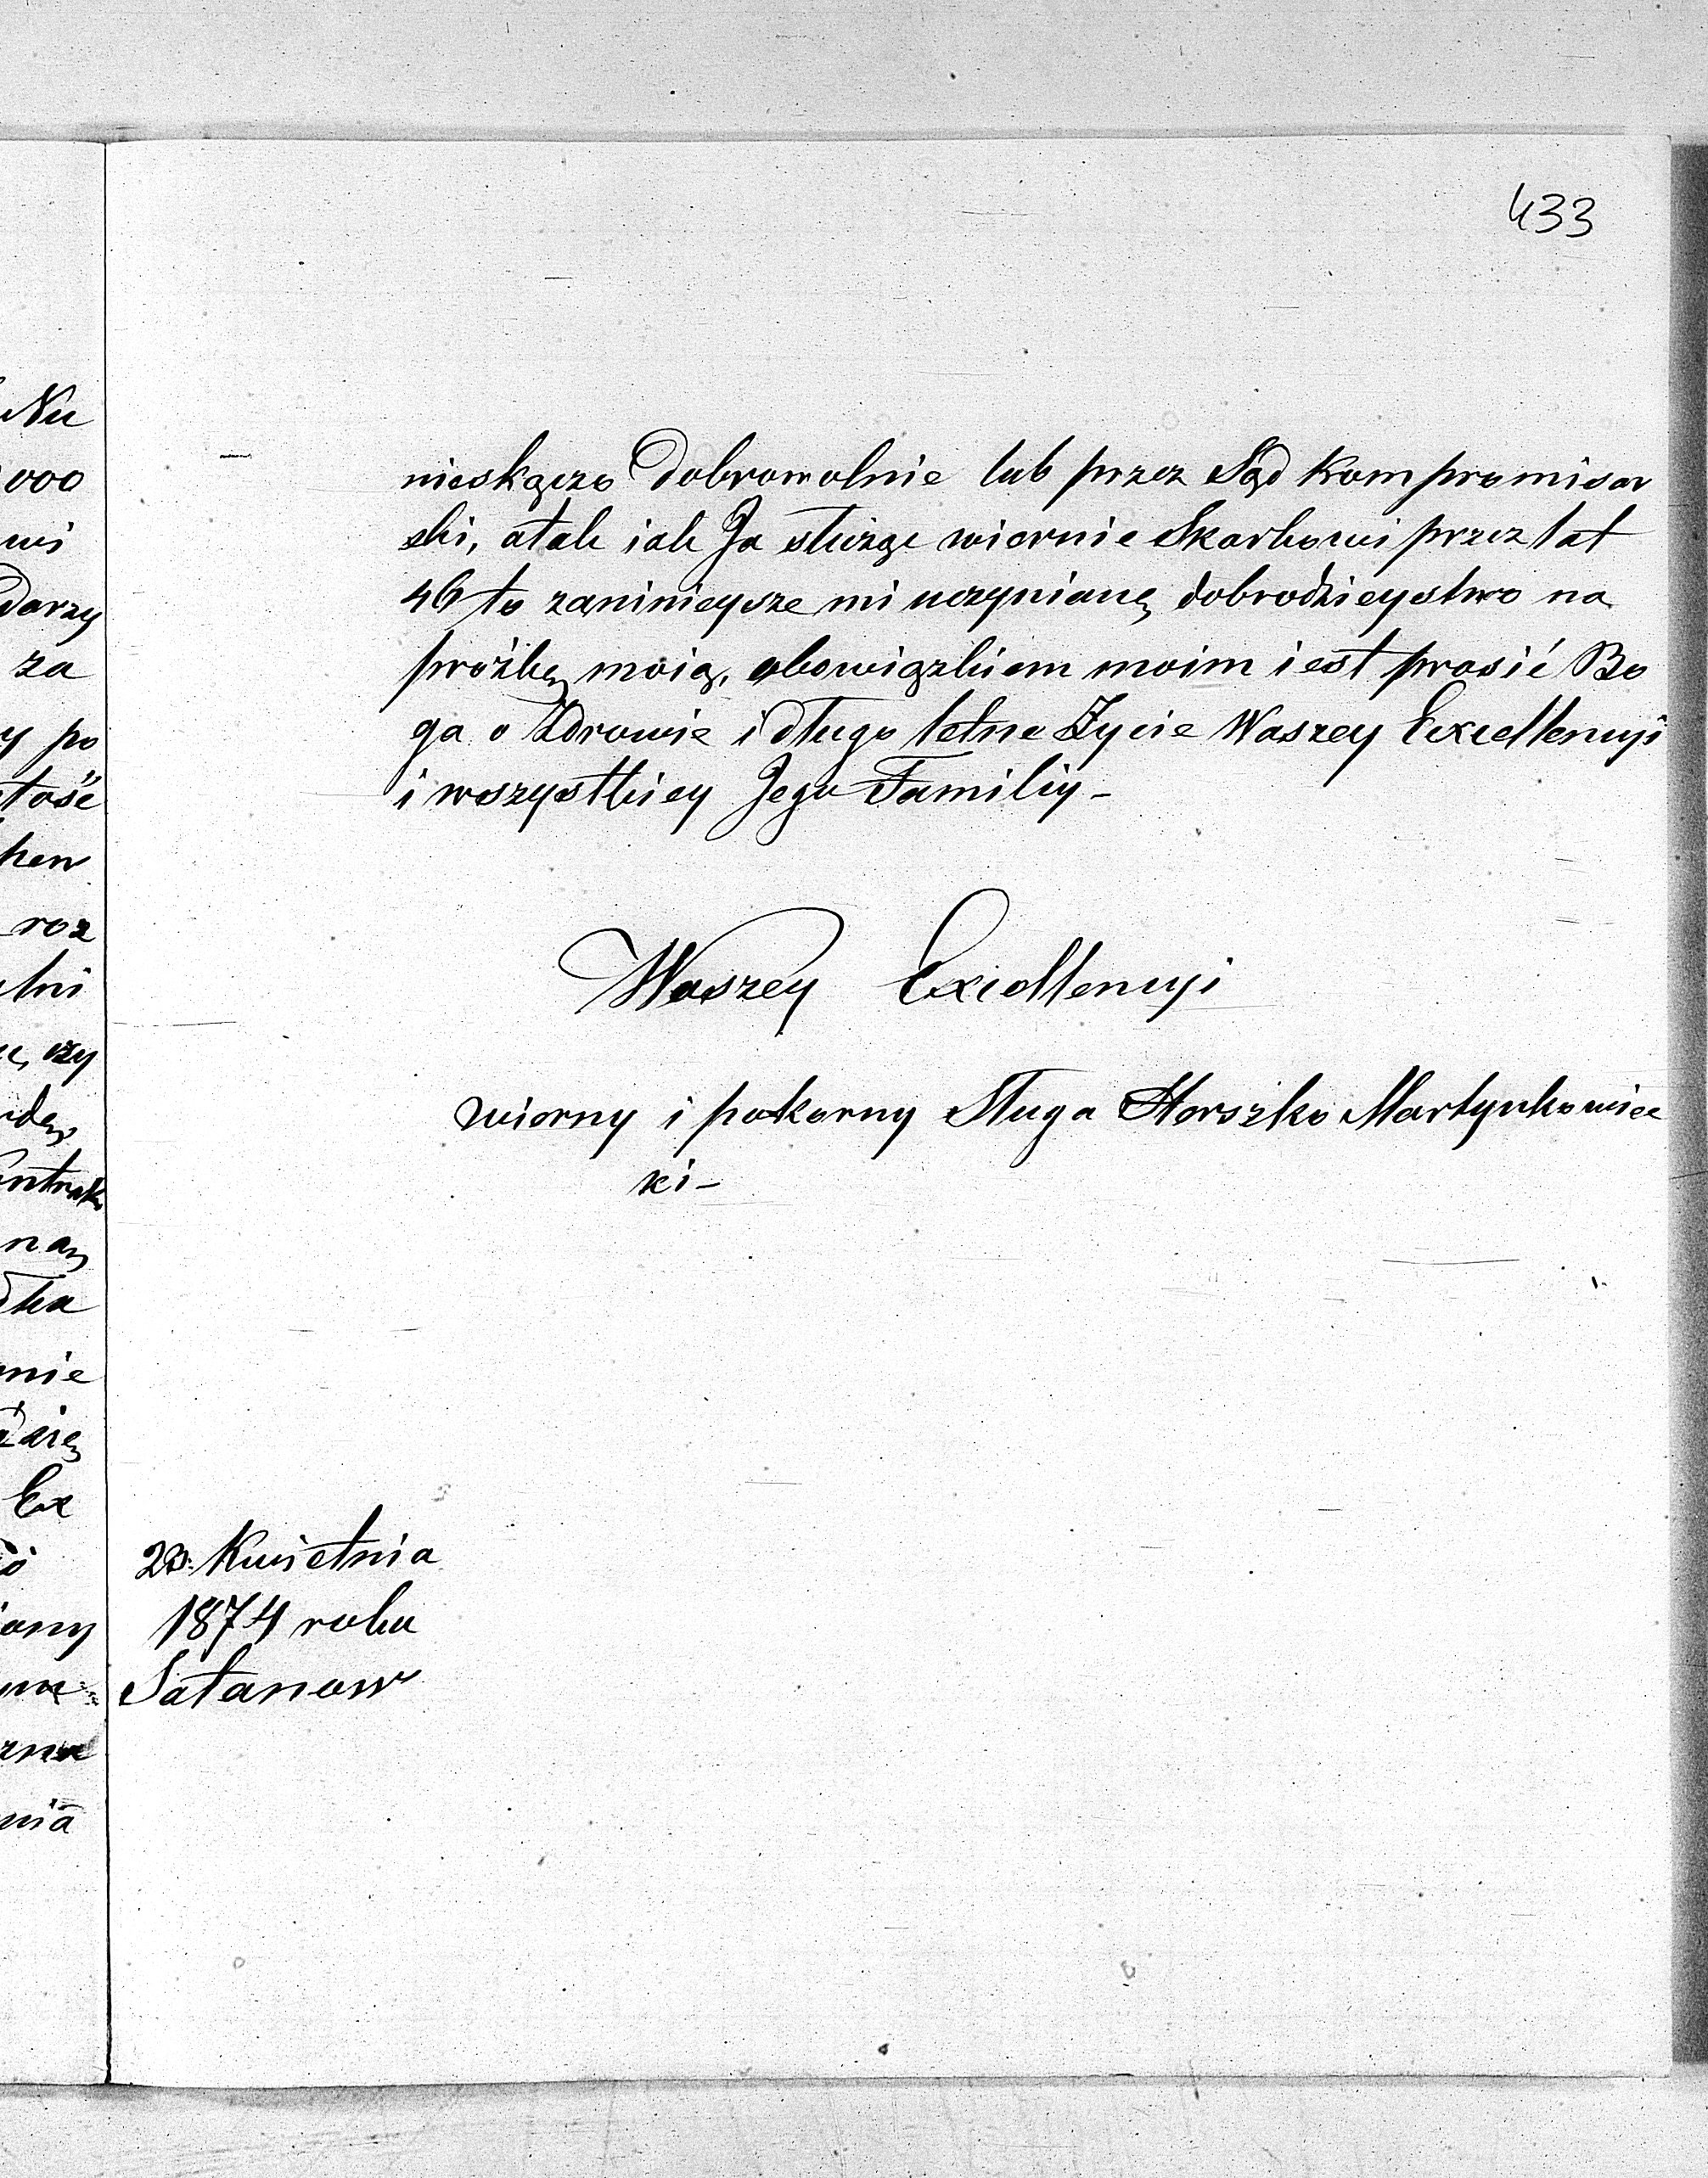 433
nieskączo Dobrowolnie lub przez Sąd Kompromisar
ski, atak iak Ja służąc wiernie Skarbowi przez lat
46 to zaninieysze mi uczynianę dobrodzieystwo na
prożbę moią, obowiązkiem moim iest prosić Bo
ga o Zdrowie i długo letne Życie Waszey Excellencyi
i wszystkiey Jego Familiy -
Waszey Excellencyi
wierny i pokorny Sługa Herszko Martynkowiec
ki -
23. Kwietnia
1874 roku
Satanow
Nu
000
wi
Darzy
za
y po
tość
roz
czy
ną
nie
się
Ex